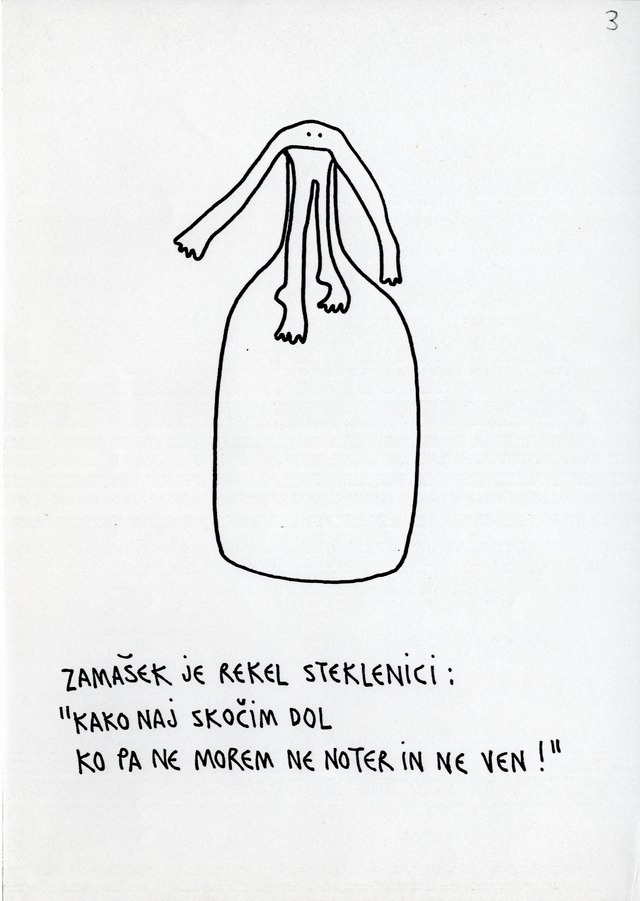 3
ZAMAŠEK JE REKEL STEKLENICI:
"KAKO NAJ SKOČIM DOL
KO PA NE MOREM NE NOTER IN NE VEN!"